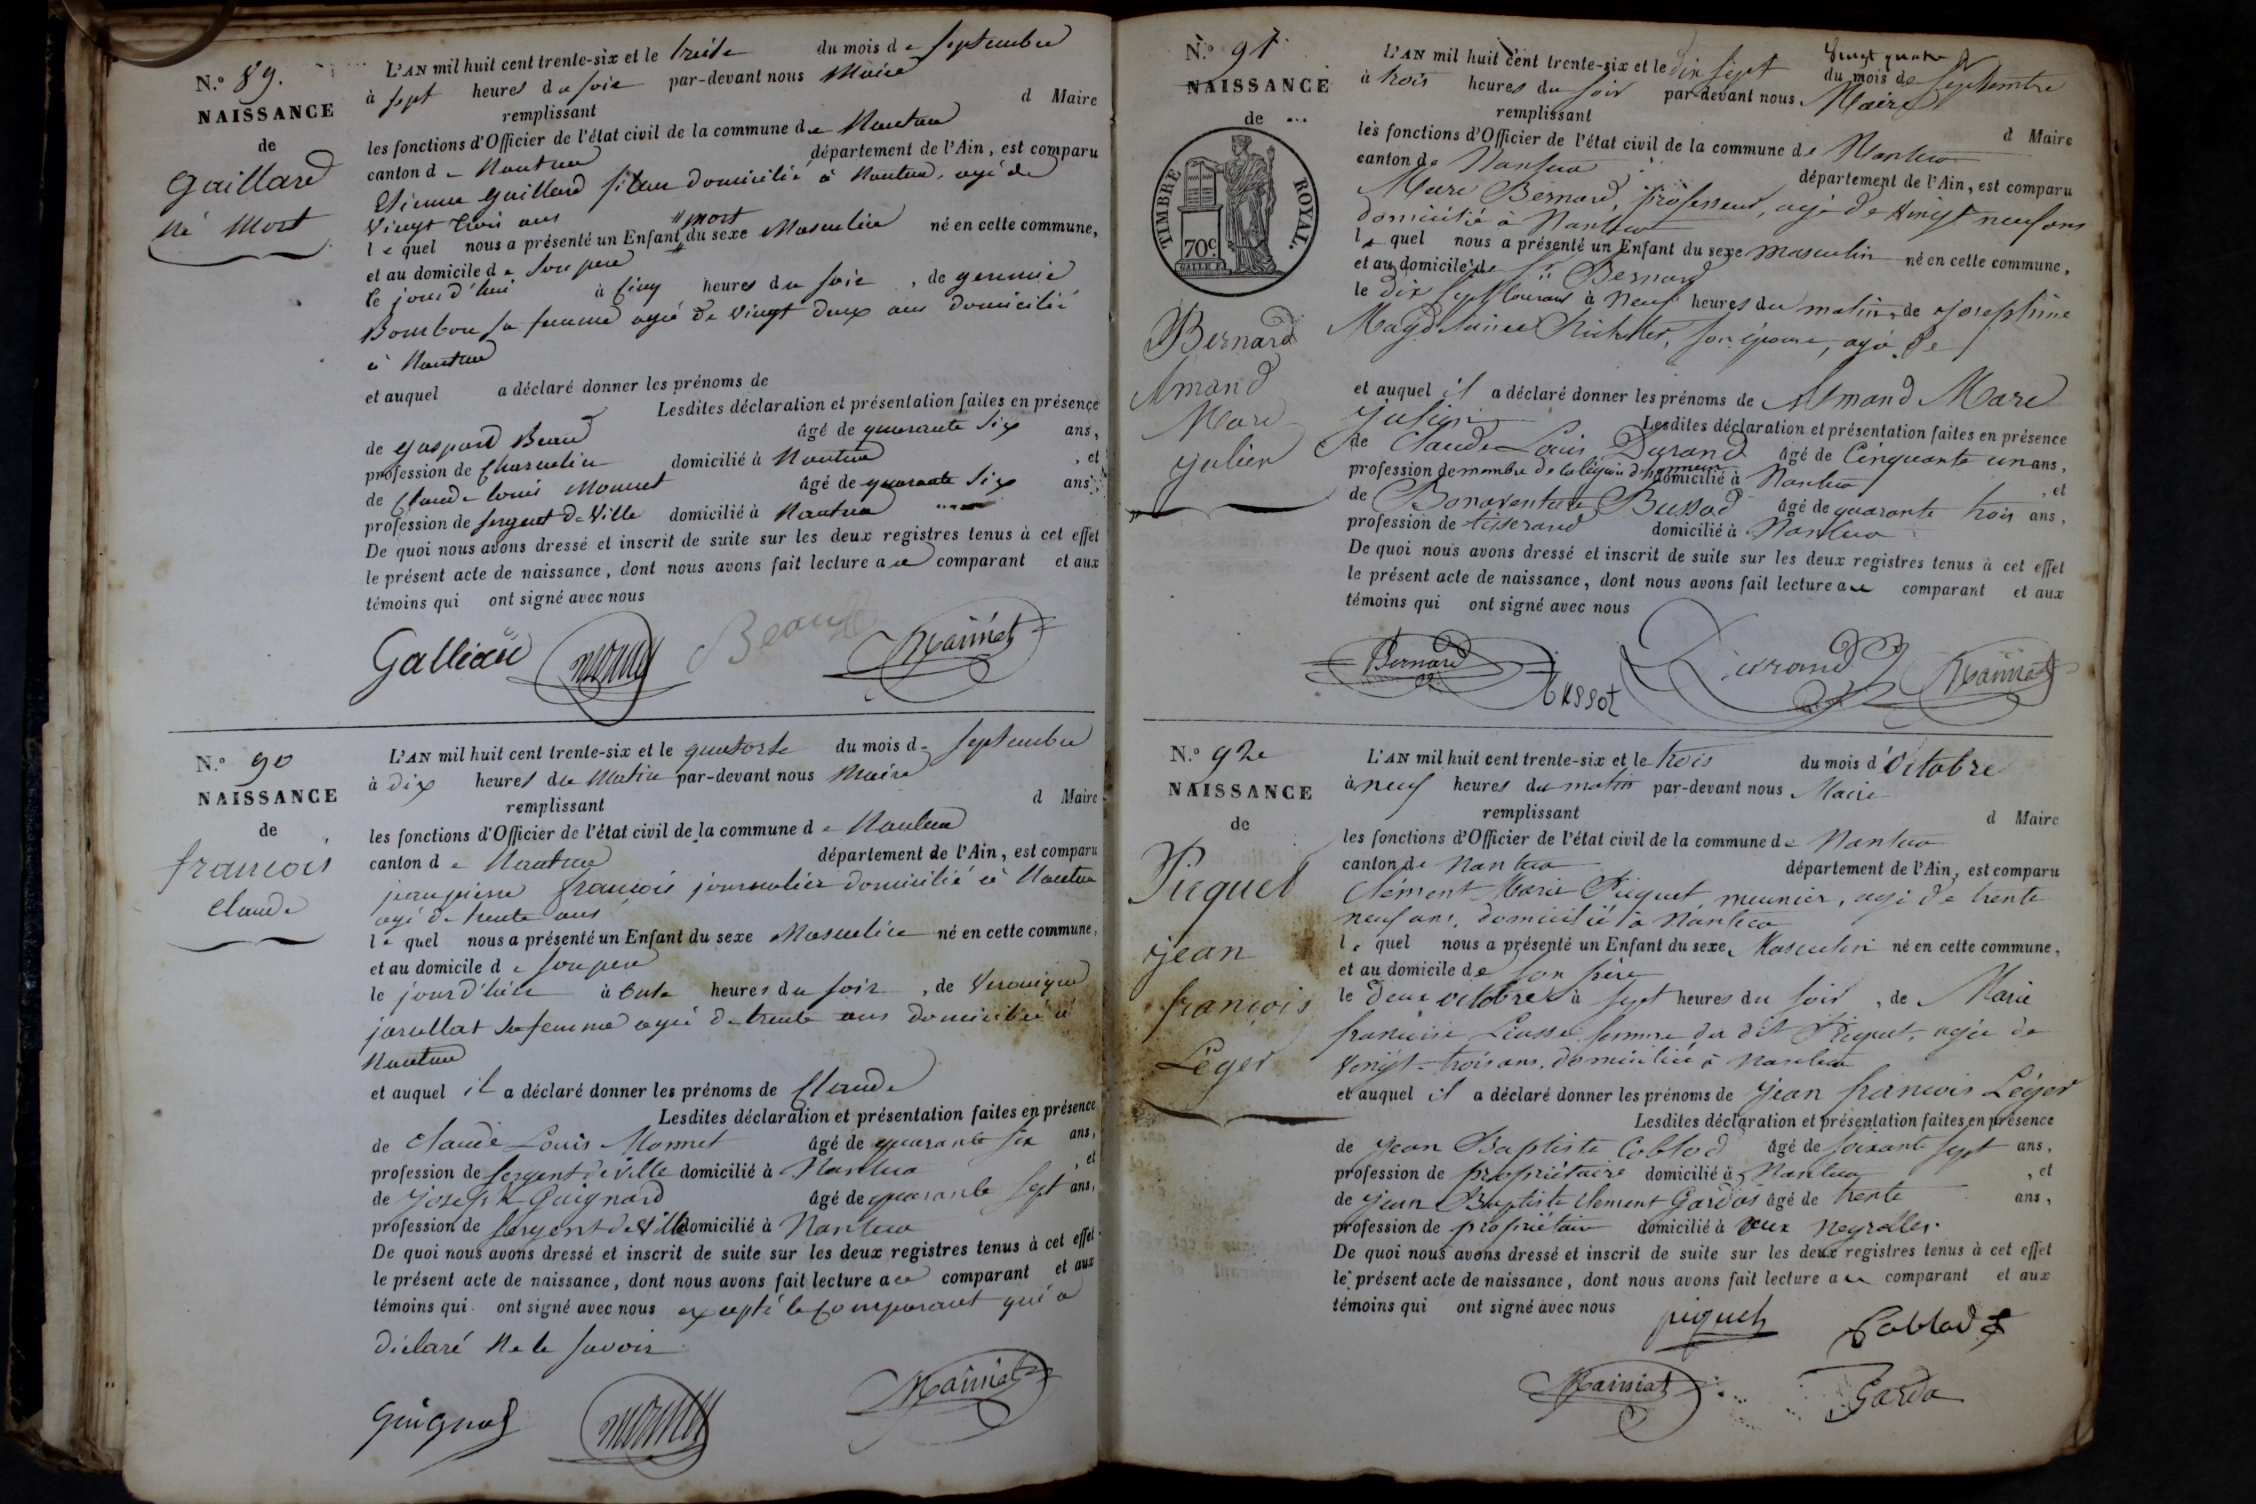 N.º 89.
NAISSANCE
de
Gaillard
né Mort
L'AN mil huit cent trente-six et le treize du mois de septembre
à sept heures du soir par-devant nous Maire
remplissant d Maire
les fonctions d'Officier de l'état civil de la commune de Nantua
canton de Nantua département de l'Ain, est comparu
Etienne Gaillard domicilié à Nantua, agé de
vingt trois ans
le quel nous a présenté un Enfant mort du sexe Masculin né en cette commune,
et au domicile de son pere
le jour d'hui à cinq heures du soir, de
Bombon sa femme agée de vingt deux ans domiciliée
à Nantua
et auquel a déclaré donner les prénoms de
Lesdites déclaration et présentation faites en présence
de Gaspard Beaud âgé de quarante six ans,
profession de domicilié à Nantua, et
de Claude Louis Monnet âgé de quarante six ans,
profession de sergent de Ville domicilié à Nantua
De quoi nous avons dressé et inscrit de suite sur les deux registres tenus à cet effet
le présent acte de naissance, dont nous avons fait lecture au comparant et aux
témoins qui ont signé avec nous
Beaud
N.º 90
NAISSANCE
de
françois
Claude
L'AN mil huit cent trente-six et le quatorze du mois de septembre
à dix heures du Matin par-devant nous Maire
remplissant d Maire
les fonctions d'Officier de l'état civil de la commune de Nantua
canton de Nantua département de l'Ain, est comparu
jean pierre françois journalier domicilié à Nantua
agé de trente ans
le quel nous a présenté un Enfant du sexe Masculin né en cette commune,
et au domicile de son pere
le jour d'hier à onze heures du soir, de Veronique
sa femme agée de trente ans domiciliée à
Nantua
et auquel il a déclaré donner les prénoms de Claude
Lesdites déclaration et présentation faites en présence
de Claude Louis Monnet âgé de quarante six ans,
profession de sergent de ville domicilié à Nantua, et
de Joseph Guignard âgé de quarante sept ans,
profession de sergent de Ville domicilié à Nantua
De quoi nous avons dressé et inscrit de suite sur les deux registres tenus à cet effet
le présent acte de naissance, dont nous avons fait lecture au comparant et aux
témoins qui ont signé avec nous excepté le comparant qui a
déclaré ne le savoir
N.º 91
NAISSANCE
de
TIMBRE ROYAL.
70c.
Bernard
Armand
Marc
Julien
L'AN mil huit cent trente-six et le dix sept vingt quatre du mois de septembre
à trois heures du soir par-devant nous Maire
remplissant d Maire
les fonctions d'Officier de l'état civil de la commune de Nantua
canton de Nantua département de l'Ain, est comparu
Marc Bernard, professeur, agé de vingt neuf ans
domicilié à Nantua
le quel nous a présenté un Enfant du sexe masculin né en cette commune,
et au domicile de Bernard
le dix sept courant à neuf heures du matin, de Joséphine
Magdelaine son épouse, agée de
et auquel il a déclaré donner les prénoms de Armand Marc
Julien
Lesdites déclaration et présentation faites en présence
de Claude Louis Durand âgé de Cinquante un ans,
profession de membre de la légion d'honneur domicilié à Nantua, et
de Bonaventure Bussod âgé de quarante trois ans,
profession de tisserand domicilié à Nantua
De quoi nous avons dressé et inscrit de suite sur les deux registres tenus à cet effet
le présent acte de naissance, dont nous avons fait lecture au comparant et aux
témoins qui ont signé avec nous
Bernard
Bussot
Durand
N.º 92
NAISSANCE
de
Picquet
jean
françois
Léger
L'AN mil huit cent trente-six et le trois du mois d'octobre
à neuf heures du matin par-devant nous Maire
remplissant d Maire
les fonctions d'Officier de l'état civil de la commune de Nantua
canton de Nantua département de l'Ain, est comparu
Clement Marie Picquet, meunier, agé de trente
neuf ans, domicilié à Nantua
le quel nous a présenté un Enfant du sexe Masculin né en cette commune,
et au domicile de son
le deux octobre à sept heures du soir, de Marie
femme du dit Picquet, agée de
vingt-trois ans, domiciliée à Nantua
et auquel il a déclaré donner les prénoms de jean françois Léger
Lesdites déclaration et présentation faites en présence
de jean Baptiste Coblod âgé de soixante sept ans,
profession de propriétaire domicilié à Nantua, et
de jean Baptiste Clement Gardas âgé de trente ans,
profession de propriétaire domicilié à aux neyrolles.
De quoi nous avons dressé et inscrit de suite sur les deux registres tenus à cet effet
le présent acte de naissance, dont nous avons fait lecture au comparant et aux
témoins qui ont signé avec nous
piquet
Coblod
Garda